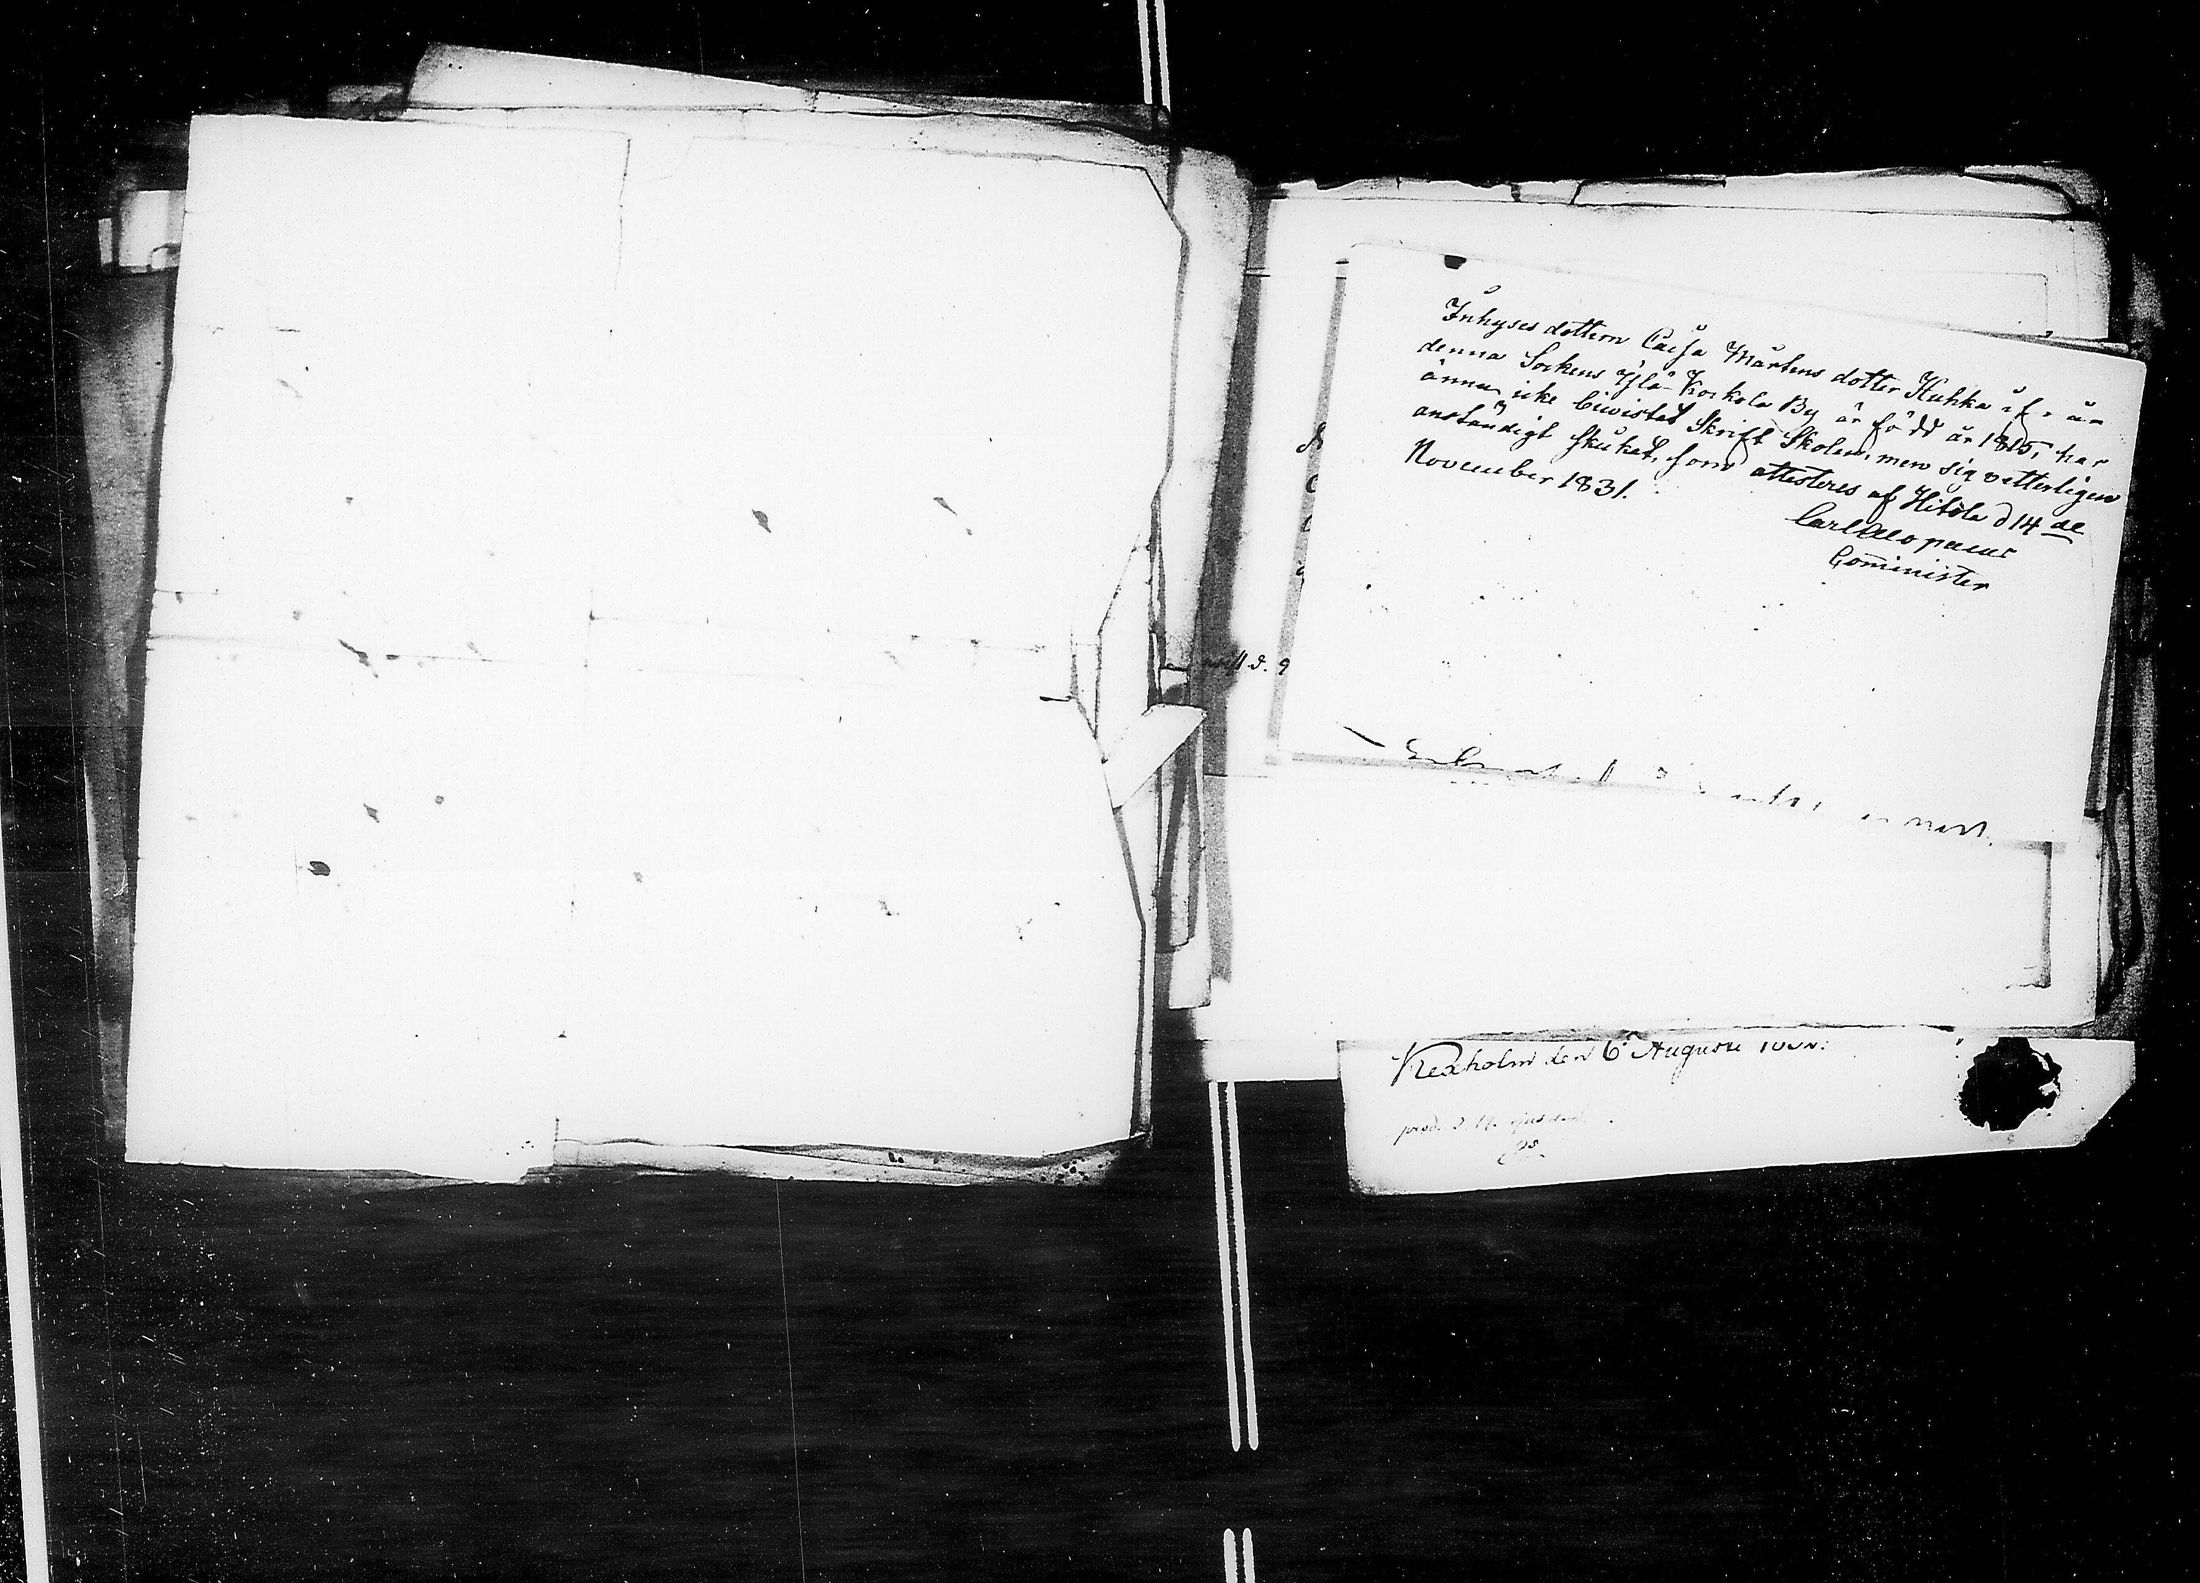 Inhyses dottern Caisa Mårtens dotter Kuhka ifrån
denna Sockens Ylä-Kockola By är född år 1815, har
ännu icke biwistat Skrift Skolan, men sig vetterligen
anständigt skickat, som attesteras af Hitola d 14 de
November 1831.
Carl Alopaeus
Comminister
Kexholm den 6 Augusti
prod. d.